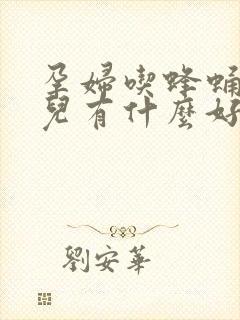 孕婦喫蜂蛹
兒有什麼好
劉安華